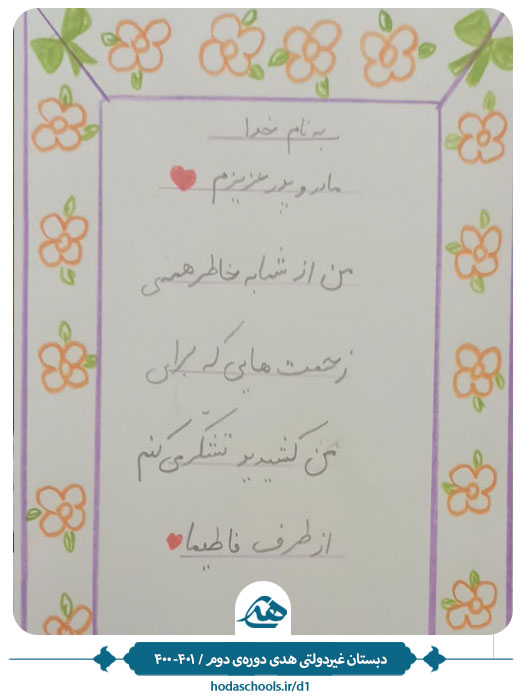 به نام خدا
مادر و پدر عزیزم
من از شما به خاطر همه‌ی
زحمت هایی که برای
من کشیدید تشکّر می کنم
از طرف فاطیما
هدی
دبستان غیردولتی هدی دوره‌ی دوم / ۴۰۱-۴۰۰
hodaschools.ir/d1